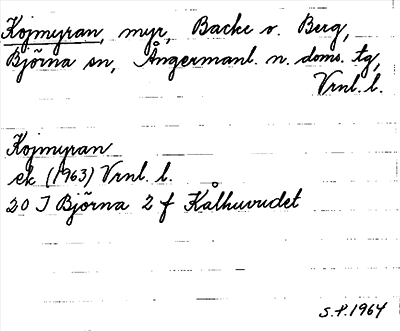 Kojmyran, myr, Backe o. Berg,
Björna sn, Ångermanl. n. doms. tg,
Vrnl. l.
Kojmyran
ek (1963) Vrnl. l.
20 I Björna 2 f Kålhuvudet
S.P. 1964